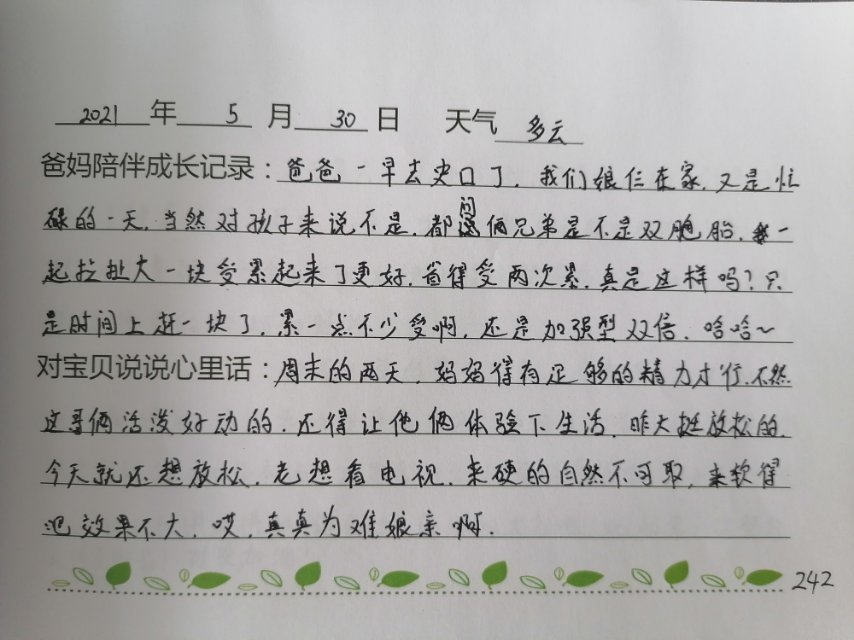 2021 年 5 月 30 日 天气 多云
爸妈陪伴成长记录：爸爸一早去史口了，我们娘仨在家，又是忙
碌的一天，当然对孩子来说不是，都问俩兄弟是不是双胞胎，一
起拉扯大一块受累起来了更好，省得受两次累，真是这样吗？只
是时间上赶一块了，累一点不少受啊，还是加强型双倍，哈哈~
对宝贝说说心里话：周末的两天，妈妈得有足够的精力才行，不然
这哥俩活泼好动的，还得让他俩体验下生活，昨天挺放松的，
今天就还想放松，老想看电视，来硬的自然不可取，来软得
吧效果不大，哎，真真为难娘亲啊.
242